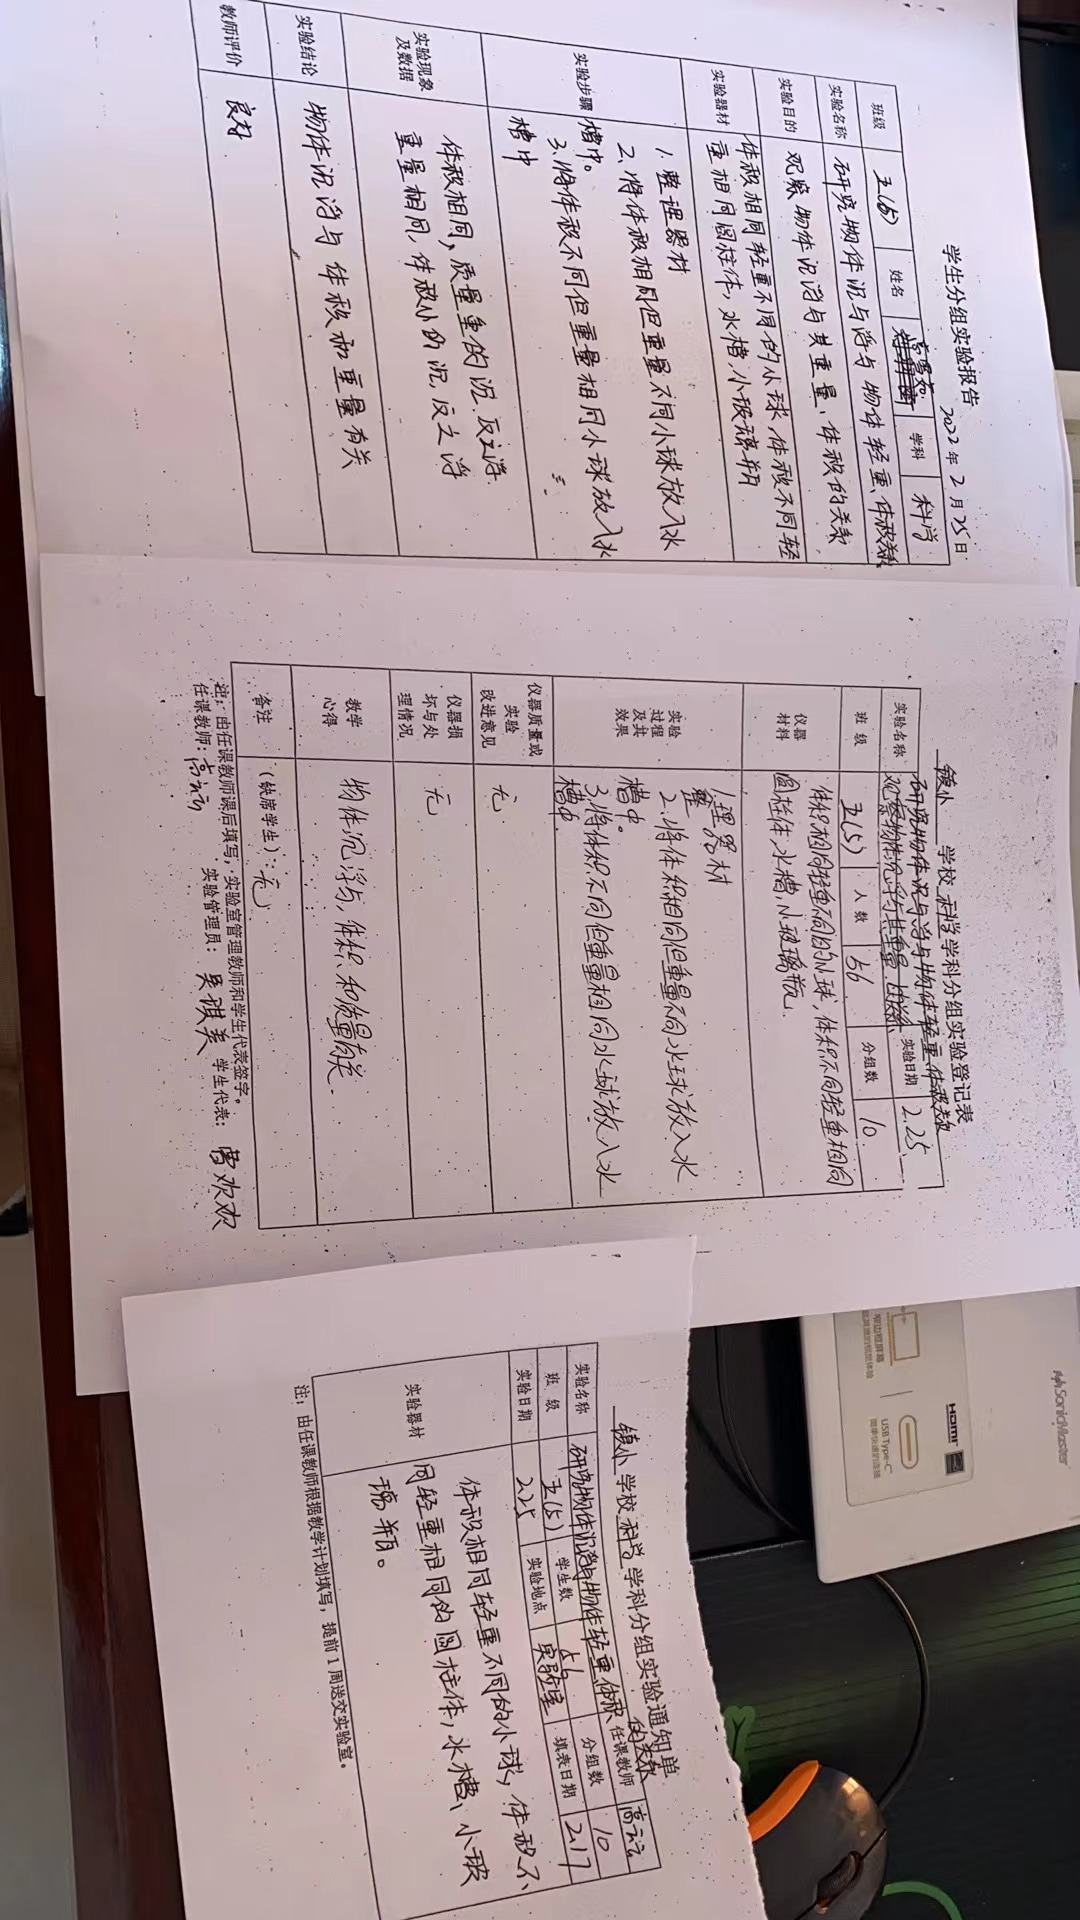 学生分组实验报告
2022年2月25日
班级 五(5) 姓名 学科 科学
实验名称 研究物体沉与浮与物体轻重、体积关系
实验目的 观察物体沉浮与其重量、体积的关系
实验器材 体积相同轻重不同的小球、体积不同轻
重相同圆柱体,水槽、小玻璃瓶
实验步骤
1. 整理器材
2. 将体积相同但重量不同小球放入水
槽中。
3. 将体积不同但重量相同小球放入水
槽中
实验现象
及数据
体积相同,质量重的沉.反之浮
重量相同,体积小的沉,反之浮
实验结论 物体沉浮与体积和重量有关
教师评价 良好
镇小 学校 科学 学科分组实验登记表
实验名称 研究物体沉与浮与物体轻重体积关系
实验日期 2.25
班级 五(5) 人数 56 分组数 10
仪器
材料
体积相同轻重不同的小球,体积不同轻重相同
圆柱体,水槽,小玻璃瓶.
实验
过程
及其
效果
1.整理器材
2.将体积相同但重量不同水球放入水
槽中。
3.将体积不同但重量相同水球放入水
槽中.
仪器质量或
实验
改进意见
无
仪器损
坏与处
理情况
无
教学
心得
物体沉浮与,体积和质量有关.
备注 (缺席学生):无
注:由任课教师课后填写,实验室管理教师和学生代表签字。
任课教师: 实验管理员: 学生代表: 曹欢欢
镇小 学校 科学 学科分组实验通知单
实验名称 研究物体沉浮与物体轻重、体积的关系 任课教师
班级 五(5) 学生数 56 分组数 10
实验日期 2.25 实验地点 实验室 填表日期 2.17
实验器材
体积相同轻重不同的小球,体积不
同轻重相同的圆柱体,水槽、小玻
璃瓶。
注:由任课教师根据教学计划填写,提前1周送交实验室。
HDMI
USB Type-C